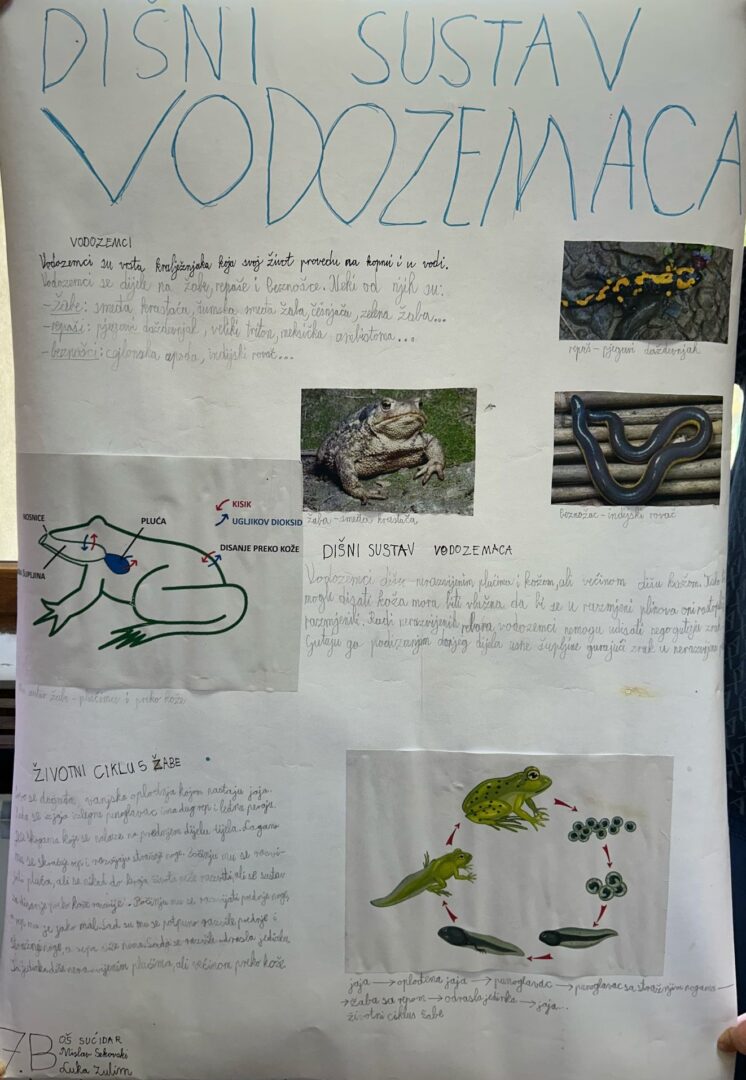 DIŠNI SUSTAV
VODOZEMACA
VODOZEMCI
Vodozemci su vrsta kralježnjaka koja svoj život provedu na kopnu i u vodi.
Vodozemci se dijele na žabe, repaše i beznošce. Neki od njih su:
- žabe: smeđa krastača, šumska smeđa žaba, češnjača, zelena žaba...
- repaši: pjegavi daždevnjak, veliki triton, meksička ambistoma...
- beznošci: cejlonska apoda, indijski rovač...
repaš - pjegavi daždevnjak
žaba - smeđa krastača
beznožac - indijski rovač
NOSNICE
PLUĆA
KISIK
UGLJIKOV DIOKSID
DISANJE PREKO KOŽE
ŠUPLJINA
žabe - plućima i preko kože
DIŠNI SUSTAV VODOZEMACA
Vodozemci dišu nerazvijenim plućima i kožom, ali većinom dišu kožom. Kako bi
mogli disati koža mora biti vlažna da bi se u razmjeni plinova oni
razmjenili. Radi nerazvijenih rebara vodozemci nemogu udisati nego gutaju zrak.
Gutaju ga podizanjem donjeg dijela usne šupljine gurajući zrak u nerazvijena
ŽIVOTNI CIKLUS ŽABE
se događa vanjska oplodnja kojom nastaju jaja.
se iz jaja izlegne punoglavac ima dug rep i leđnu peraju.
škrgama koje se nalaze na prednjem dijelu tijela. Lagano
mu se skraćuje rep i razvijaju stražnje noge. Počinju mu se razvi-
jati pluća, ali se nikad do kraja života neće razviti, ali se sustav
za disanje preko kože razvije. Počinju mu se razvijati prednje noge,
a rep mu je jako mali. Sad su mu se potpuno razvile prednje i
stražnje noge, a repa više nema. Sada se razvila odrasla jedinka.
Ta jedinka diše nerazvijenim plućima, ali većinom preko kože
jaja → oplođena jaja → punoglavac → punoglavac sa stražnjim nogama →
→ žaba sa repom → odrasla jedinka → jaja...
životni ciklus žabe
7.B
OŠ SUĆIDAR
Mislav Sekovski
Luka Zulim